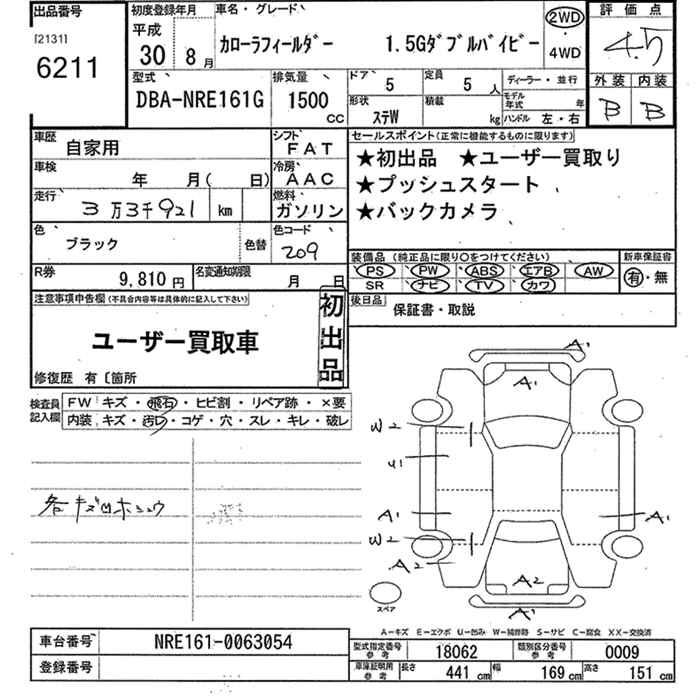 出品番号
[2131]
6211
初度登録年月
平成
30年 8月
車名・グレード
カローラフィールダー 1.5Gダブルバイビー
2WD
・
4WD
評価点
4.5
外装 内装
B B
型式
DBA-NRE161G
排気量
1500
CC
ドア 5
定員 5 人
形状 ステW
積載 kg
ディーラー・並行
モデル年式 年
ハンドル 左・右
車歴 自家用
シフト FAT
車検 年 月( 日)
冷房 AAC
走行 3万3千921 km
燃料 ガソリン
色 ブラック
色替
色コード 209
R券 9,810円
名変通知期限 月 日
セールスポイント(正常に機能するものに限ります)
★初出品 ★ユーザー買取り
★プッシュスタート
★バックカメラ
装備品(純正品に限り○をつけてください)
PS PW ABS エアB AW
SR ナビ TV カワ
新車保証書
有・無
後日品 保証書・取説
注意事項申告欄(不具合内容等は具体的に記入して下さい)
ユーザー買取車
初出品
修復歴 有〔箇所
検査員記入欄
FW キズ・飛石・ヒビ割・リペア跡・×要
内装 キズ・汚レ・コゲ・穴・スレ・キレ・破レ
各キズ凹ホシュウ
A1
A1
W2
U1
A1
A1
W2
A2
A2
A1
スペア
A-キズ E-エクボ U-凹み W-補修跡 S-サビ C-腐食 XX-交換済
車台番号 NRE161-0063054
登録番号
型式指定番号参考 18062
類別区分番号参考 0009
車庫証明用参考 長さ 441 cm 幅 169 cm 高さ 151 cm